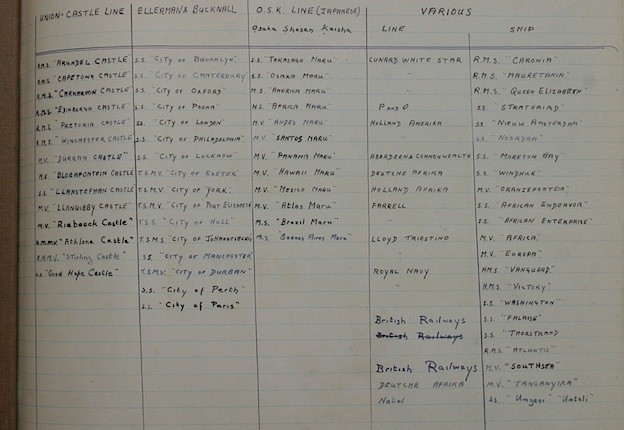 UNION-CASTLE LINE
R.M.S. "ARUNDEL CASTLE
R.M.S. "CAPETOWN CASTLE
R.M.S. "CARNARVON CASTLE
R.M.S. "EDINBURGH CASTLE
R.M.S. "PRETORIA CASTLE
R.M.S. "WINCHESTER CASTLE
M.V. "DURBAN CASTLE"
M.V. "BLOEMFONTEIN CASTLE
S.S. "LLANSTEPHAN CASTLE
M.V. "LLANGIBBY CASTLE
M.V. "Riebeeck Castle"
R.M.M.V. "Athlone Castle"
R.M.M.V. "Stirling Castle"
S.S. "Good Hope Castle"
ELLERMAN & BUCKNALL
S.S. "CITY OF BROOKLYN"
S.S. "CITY OF CANTERBURY"
S.S. "CITY OF OXFORD"
S.S. "CITY OF POONA"
S.S. "CITY OF LONDON"
S.S. "CITY OF PHILADELPHIA"
S.S. "CITY OF LUCKNOW"
T.S.M.V. "CITY OF EXETER"
T.S.M.V. "CITY OF YORK"
T.S.M.V. "CITY OF PORT ELIZABETH
T.S.S. "CITY OF HULL"
T.S.M.S. "CITY OF JOHANNESBURG
S.S. "CITY OF MANCHESTER"
T.S.M.V. "CITY OF DURBAN"
S.S. "City of Perth"
S.S. "City of Paris"
O.S.K. LINE (JAPANESE)
Osaka Shosen Kaisha
S.S. "TAKASAGO MARU"
S.S. "OSAKA MARU"
M.S. "AMERIKA MARU"
M.S. "AFRICA MARU"
M.V. "ANDES MARU"
M.V. "SANTOS MARU"
M.V. "PANAMA MARU"
M.V. "HAWAII MARU"
M.V. "MEXICO MARU"
M.V. "Atlas Maru"
M.S. "Brazil Maru"
M.S. "Buenos Aires Maru"
VARIOUS
LINE SHIP
CUNARD WHITE STAR R.M.S. "CARONIA"
" R.M.S. "MAURETANIA"
" R.M.S. "QUEEN ELIZABETH"
P and O S.S. "STRATHAIRD"
HOLLAND AMERIKA S.S. "NIEUW AMSTERDAM"
" S.S. "NOORDAM"
ABERDEEN & COMMONWEALTH S.S. "MORETON BAY"
DEUTCHE AFRIKA S.S. "WINDHUK"
HOLLAND AFRIKA M.V. "ORANJEFONTEIN"
FARRELL S.S. "AFRICAN ENDEAVOR"
" S.S. "AFRICAN ENTERPRISE"
LLOYD TRIESTINO M.V. "AFRICA"
" M.V. "EUROPA"
ROYAL NAVY H.M.S. "VANGUARD"
" H.M.S. "VICTORY"
S.S. "WASHINGTON"
British Railways S.S. "FALAISE"
British Railways S.S. "THORSTRAND
R.M.S. "ATLANTIS"
British Railways M.V. "SOUTHSEA"
DEUTCHE AFRIKA M.V. "TANGANYIKA"
Natal S.S. "Umgeni" "Umtali"